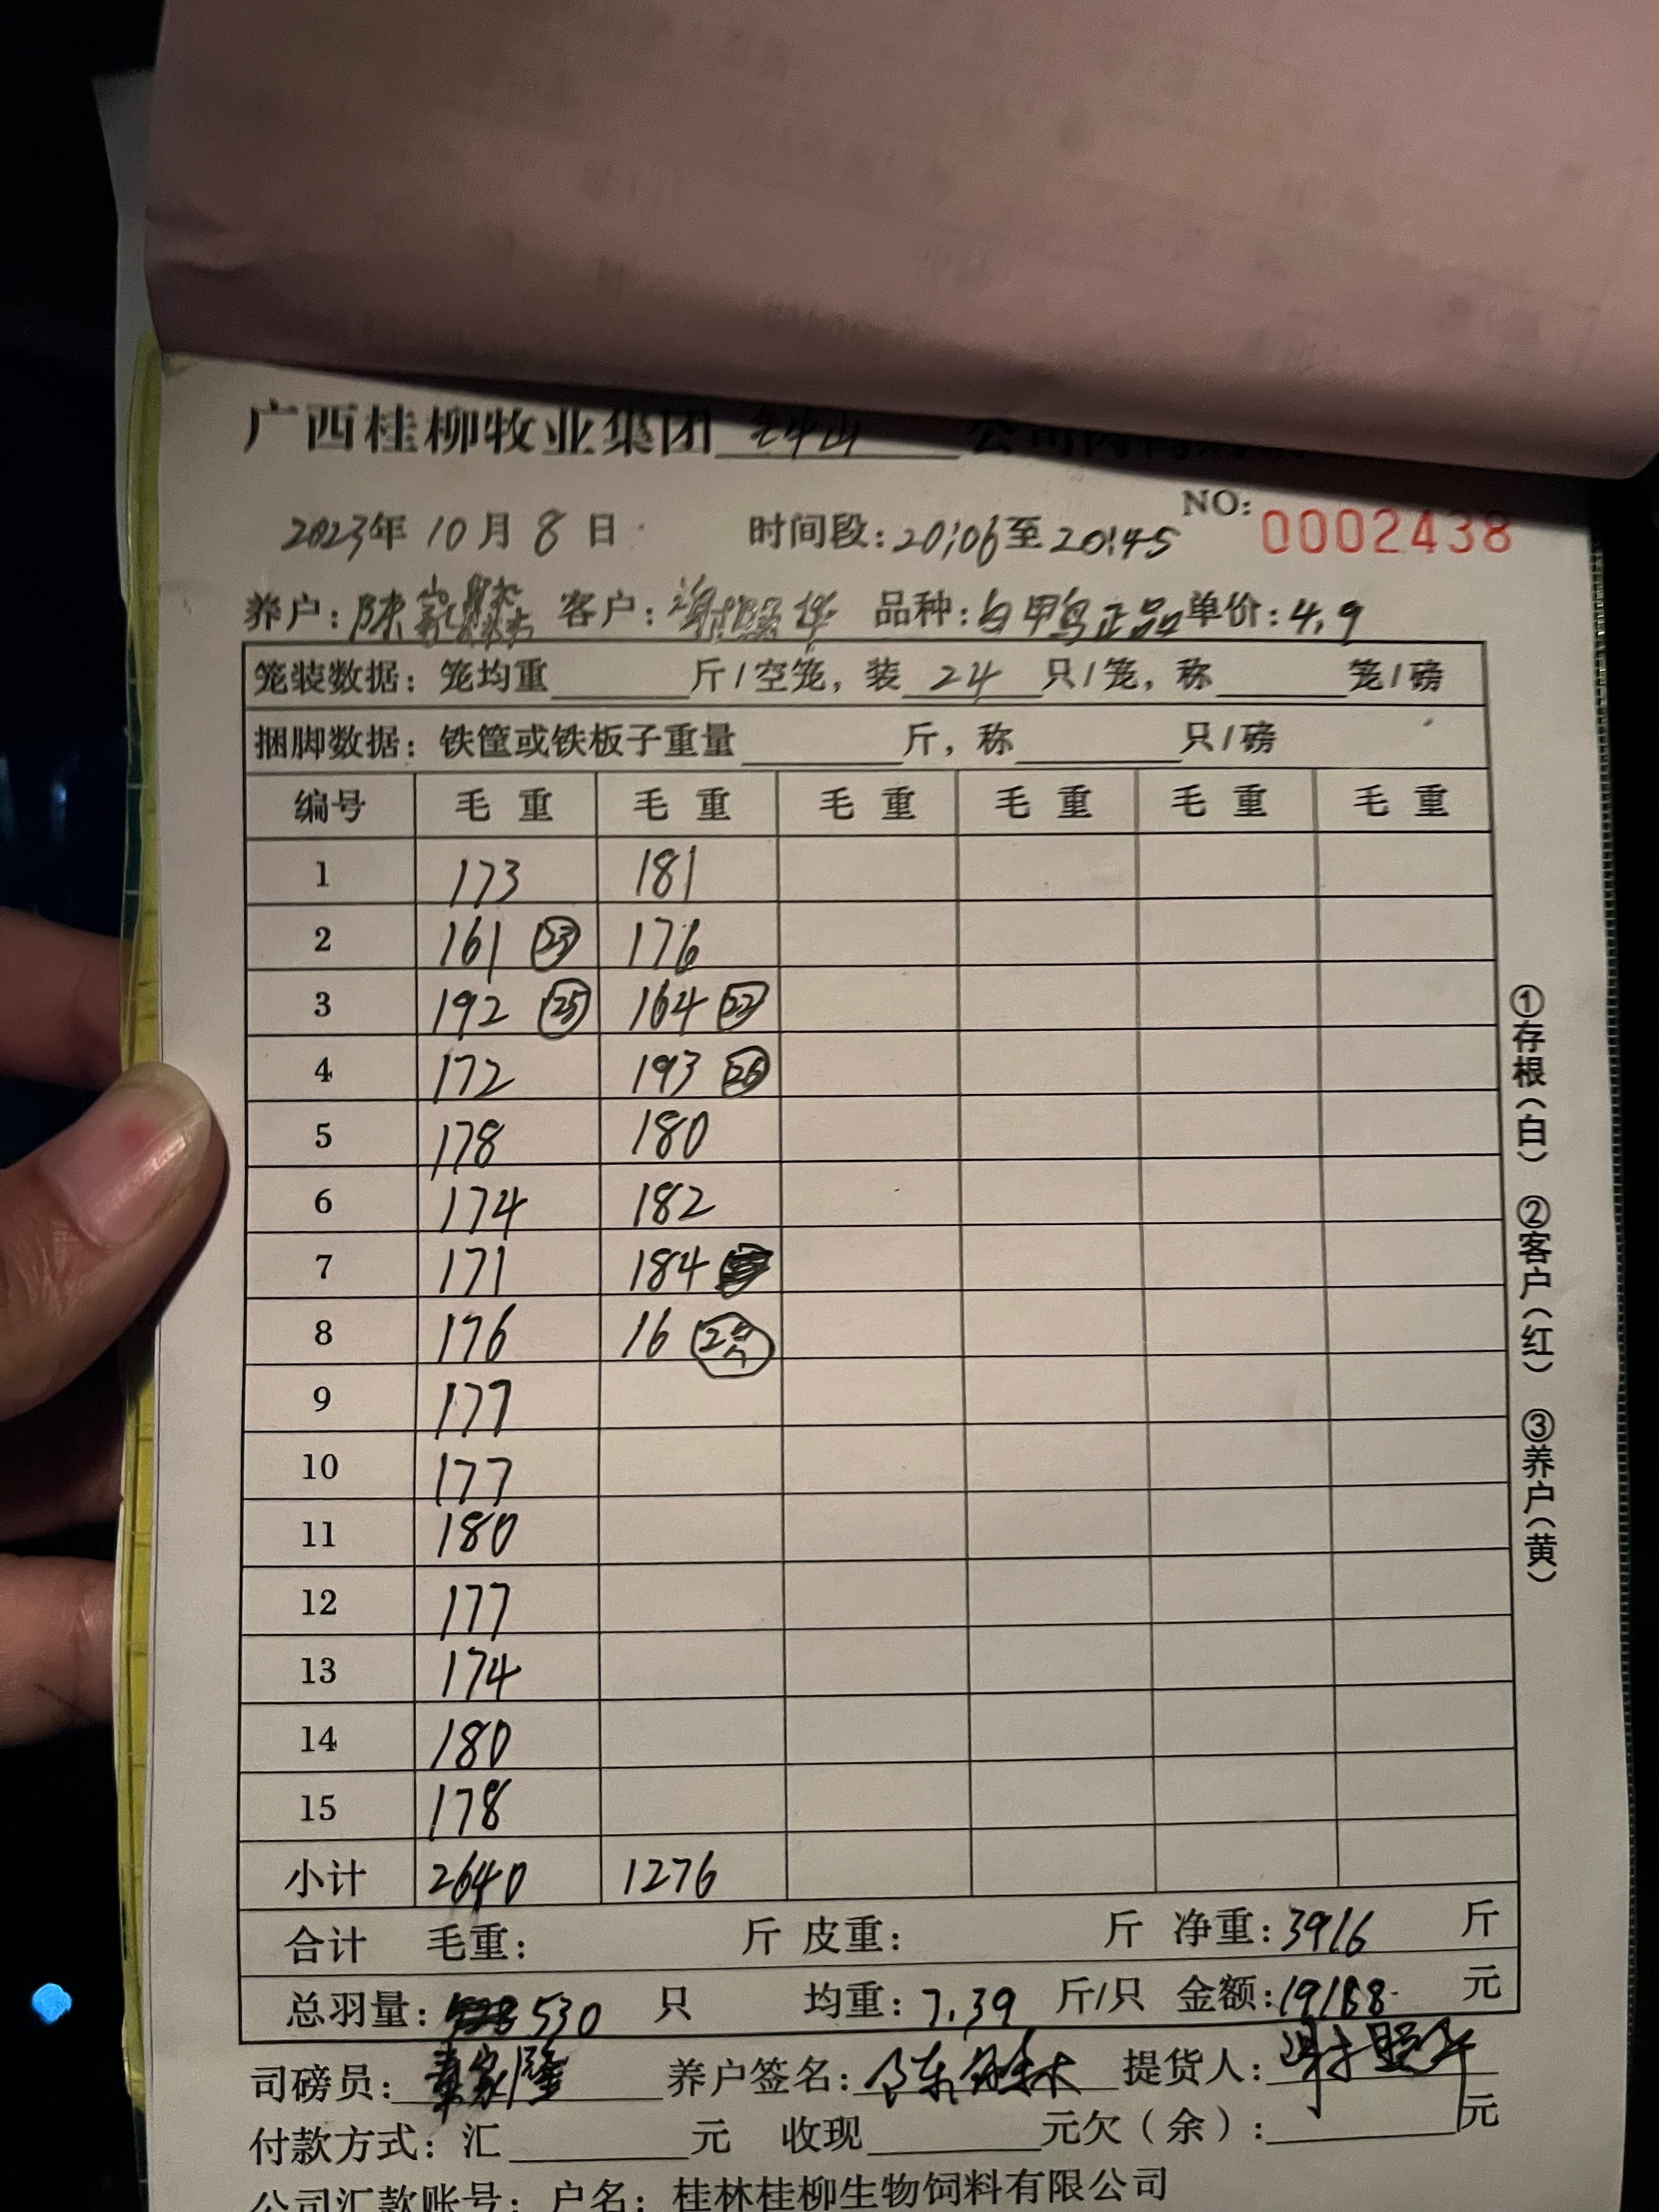 广西桂柳牧业集团
2023年 10月 8日 时间段:20:06至20:45 NO: 0002438
养户:陈家 客户:谢 品种:白甲鸟正品 单价:4.9
笼装数据: 笼均重 斤/空笼, 装 24 只/笼, 称 笼/磅
捆脚数据: 铁筐或铁板子重量 斤, 称 只/磅
编号 毛重 毛重 毛重 毛重 毛重 毛重
1 173 181
2 161 (23) 176
3 192 (25) 164 (22)
4 172 193 (26)
5 178 180
6 174 182
7 171 184
8 176 16 (2只)
9 177
10 177
11 180
12 177
13 174
14 180
15 178
小计 2640 1276
合计 毛重: 斤 皮重: 斤 净重:3916 斤
总羽量: 530 只 均重:7.39 斤/只 金额:19188 元
司磅员: 养户签名: 提货人:
付款方式: 汇 元 收现 元欠(余): 元
公司汇款账号: 户名: 桂林桂柳生物饲料有限公司
①存根(白) ②客户(红) ③养户(黄)